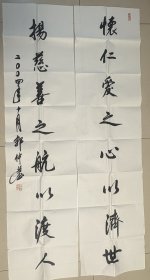 懷仁爱之心以濟世
揚慈善之航以渡人
二〇〇四年十月